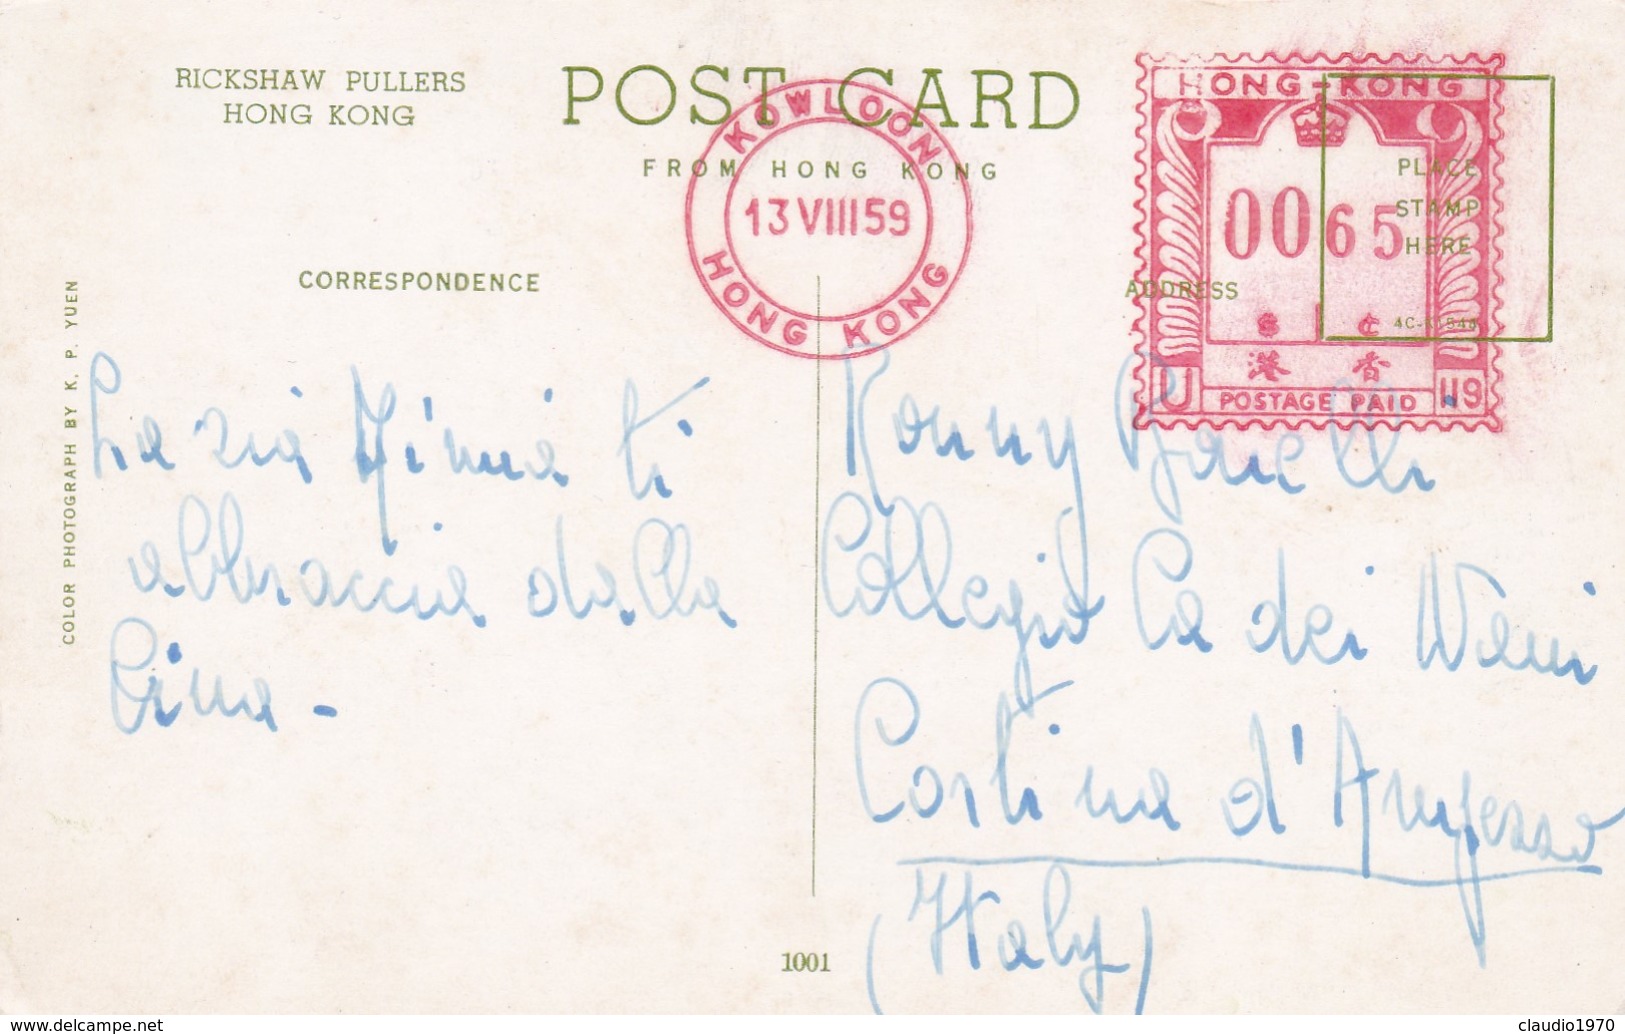 RICKSHAW PULLERS
HONG KONG
POST CARD
FROM HONG KONG
KOWLOON
13 VIII 59
HONG KONG
HONG-KONG
0065
$ ¢
港 香
U POSTAGE PAID 119
PLACE
STAMP
HERE
ADDRESS
CORRESPONDENCE
COLOR PHOTOGRAPH BY K. P. YUEN
La zia Mimia ti
abbraccia dalla
Cina -
Ronny
Collegio Ca dei
Cortina d'Ampezzo
(Italy)
1001
www.delcampe.net
claudio1970